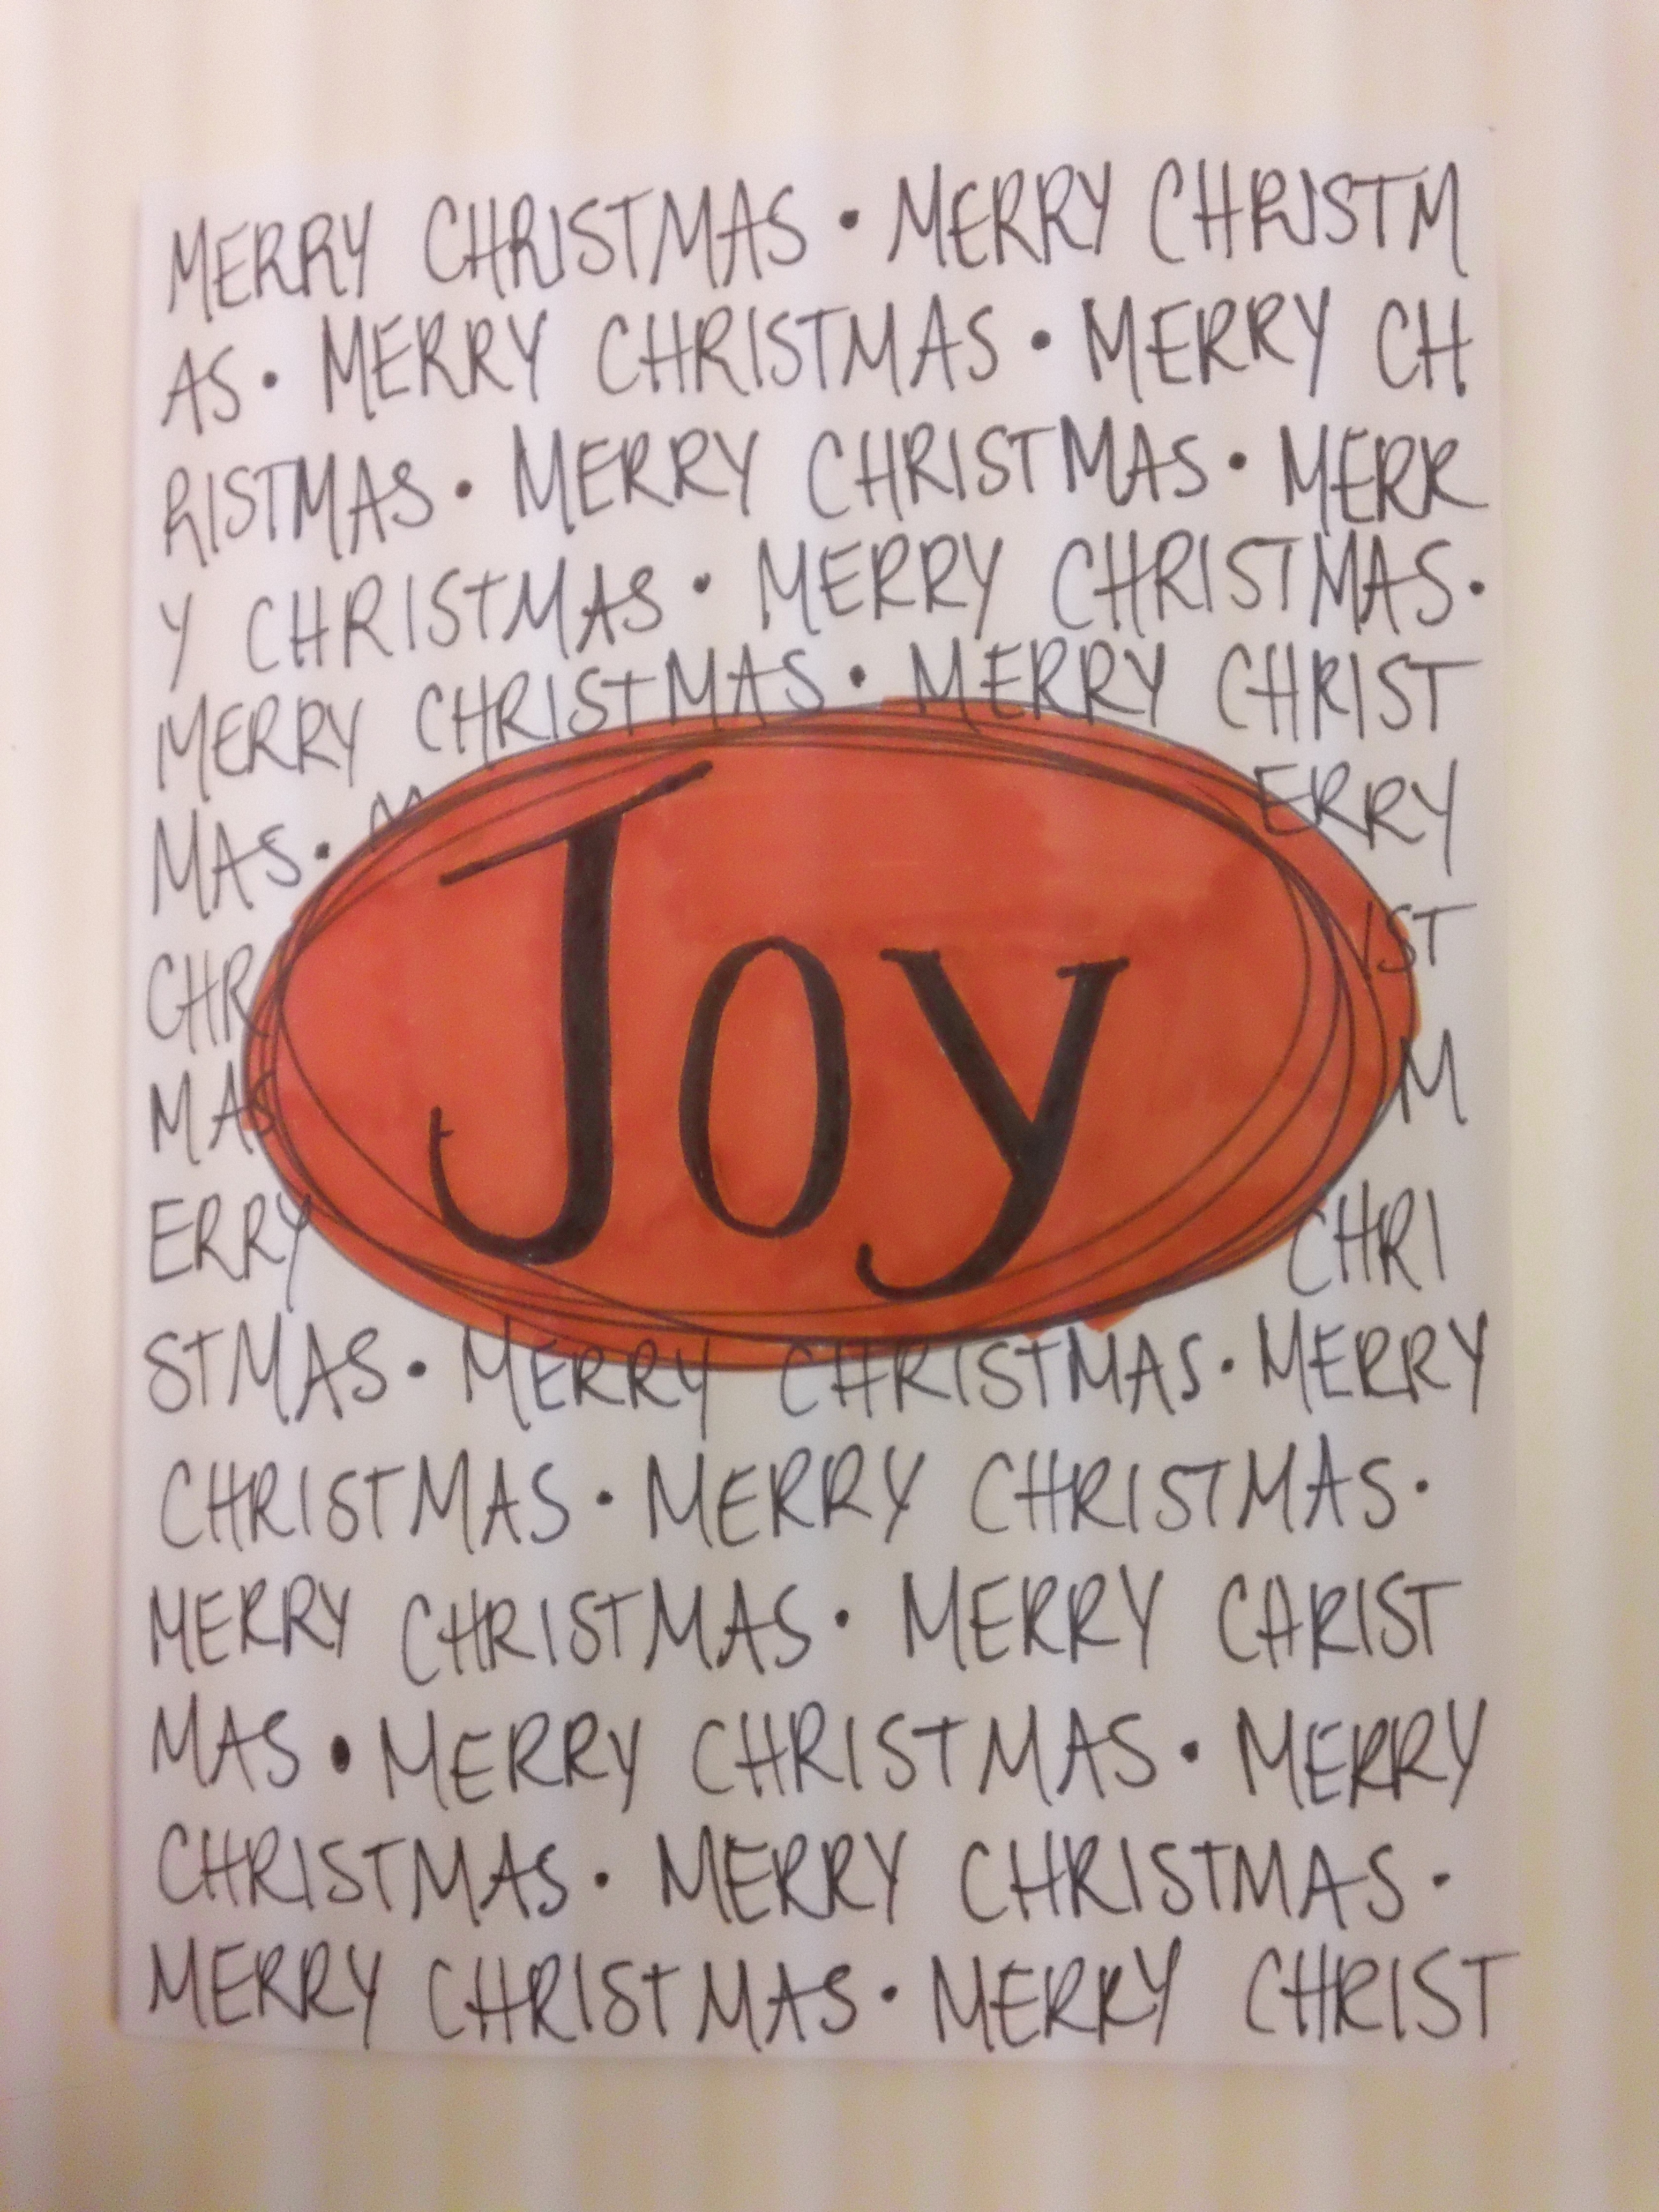 MERRY CHRISTMAS • MERRY CHRISTM
AS • MERRY CHRISTMAS • MERRY CH
RISTMAS • MERRY CHRISTMAS • MERR
Y CHRISTMAS • MERRY CHRISTMAS •
MERRY CHRISTMAS • MERRY CHRIST
MAS • M ERRY
CHR IST
MAS M
Joy
ERRY CHRI
STMAS • MERRY CHRISTMAS • MERRY
CHRISTMAS • MERRY CHRISTMAS •
MERRY CHRISTMAS • MERRY CHRIST
MAS • MERRY CHRISTMAS • MERRY
CHRISTMAS • MERRY CHRISTMAS •
MERRY CHRISTMAS • MERRY CHRIST